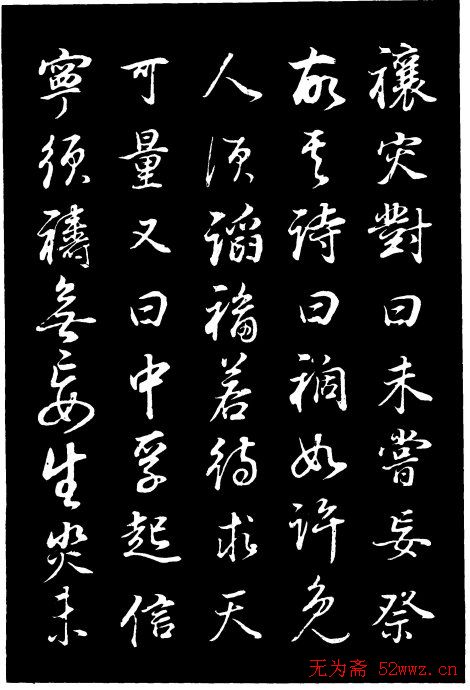 禳灾對曰未嘗妄祭
故其詩曰禍如許免
人須諂福若待求天
可量又曰中孚起信
寧須禱無妄生災未
无为斋 52wwz.cn